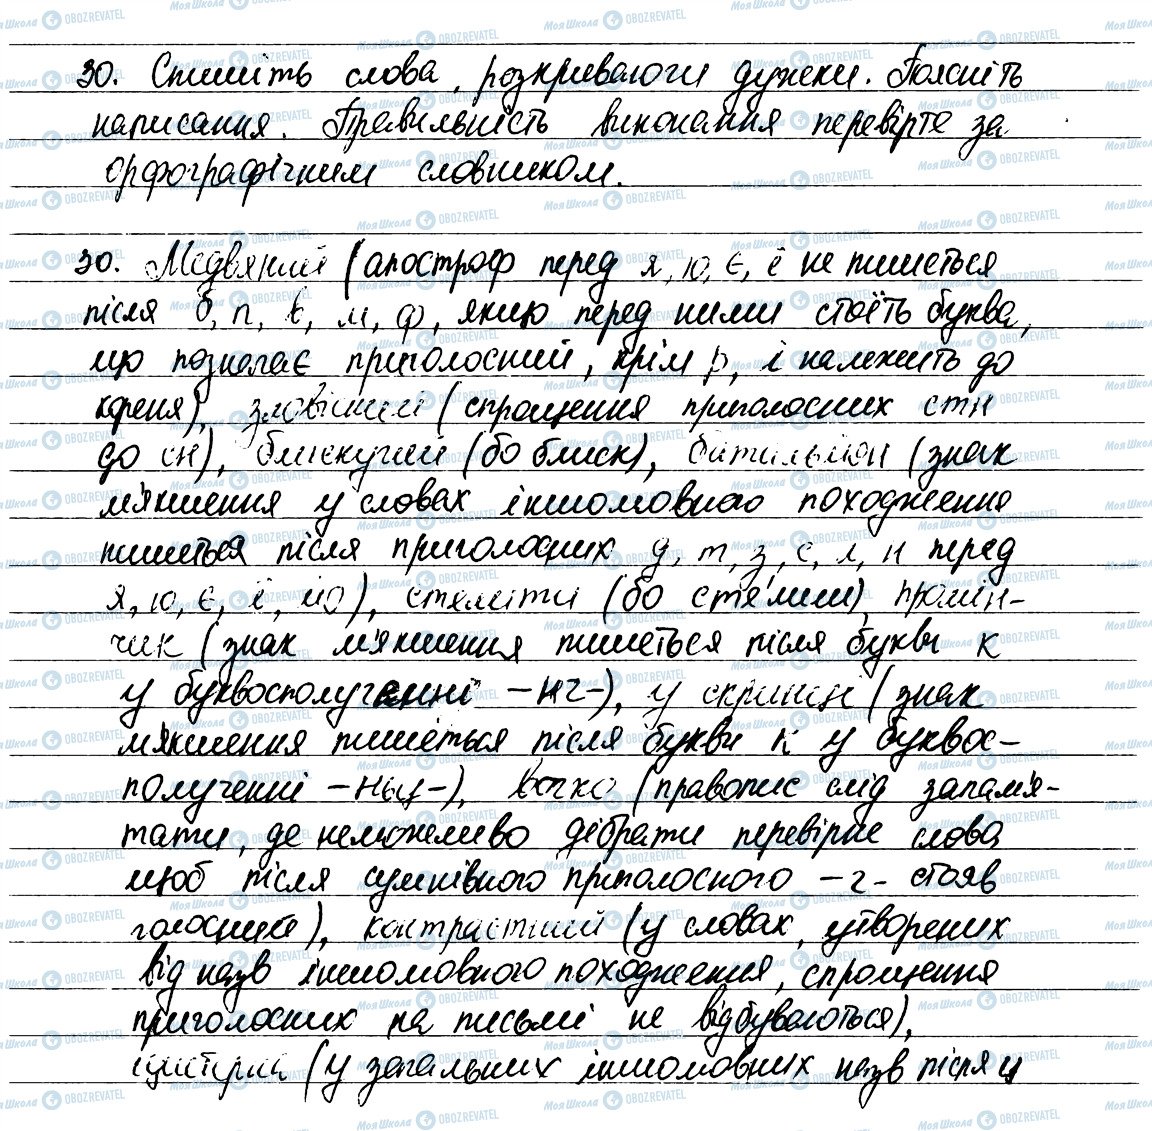 30. Спишіть слова, розкриваючи дужки. Поясніть
написання. Правильність виконання перевірте за
орфографічним словником.
30. Медвяний (апостроф перед я, ю, є, ї не пишеться
після б, п, в, м, ф, якщо перед ними стоїть буква,
що позначає приголосний, крім р, і належить до
кореня), зловісний (спрощення приголосних стн
до сн), блискучий (бо блиск), батальйон (знак
м'якшення у словах іншомовного походження
пишеться після приголосних д, т, з, с, л, н перед
я, ю, є, ї, йо), стелити (бо сте́лиш), промін-
чик (знак м'якшення пишеться після букви н
у буквосполученні -нч-), у скриньці (знак
м'якшення пишеться після букви н у буквос-
полученні -ньц-), вогко (правопис слід запам'я-
тати, де неможливо дібрати перевірне слова
щоб після сумнівного приголосного -г- стояв
голосний), контрастний (у словах, утворених
від назв іншомовного походження, спрощення
приголосних на письмі не відбуваються),
цистерна (у загальних іншомовних назв після ц